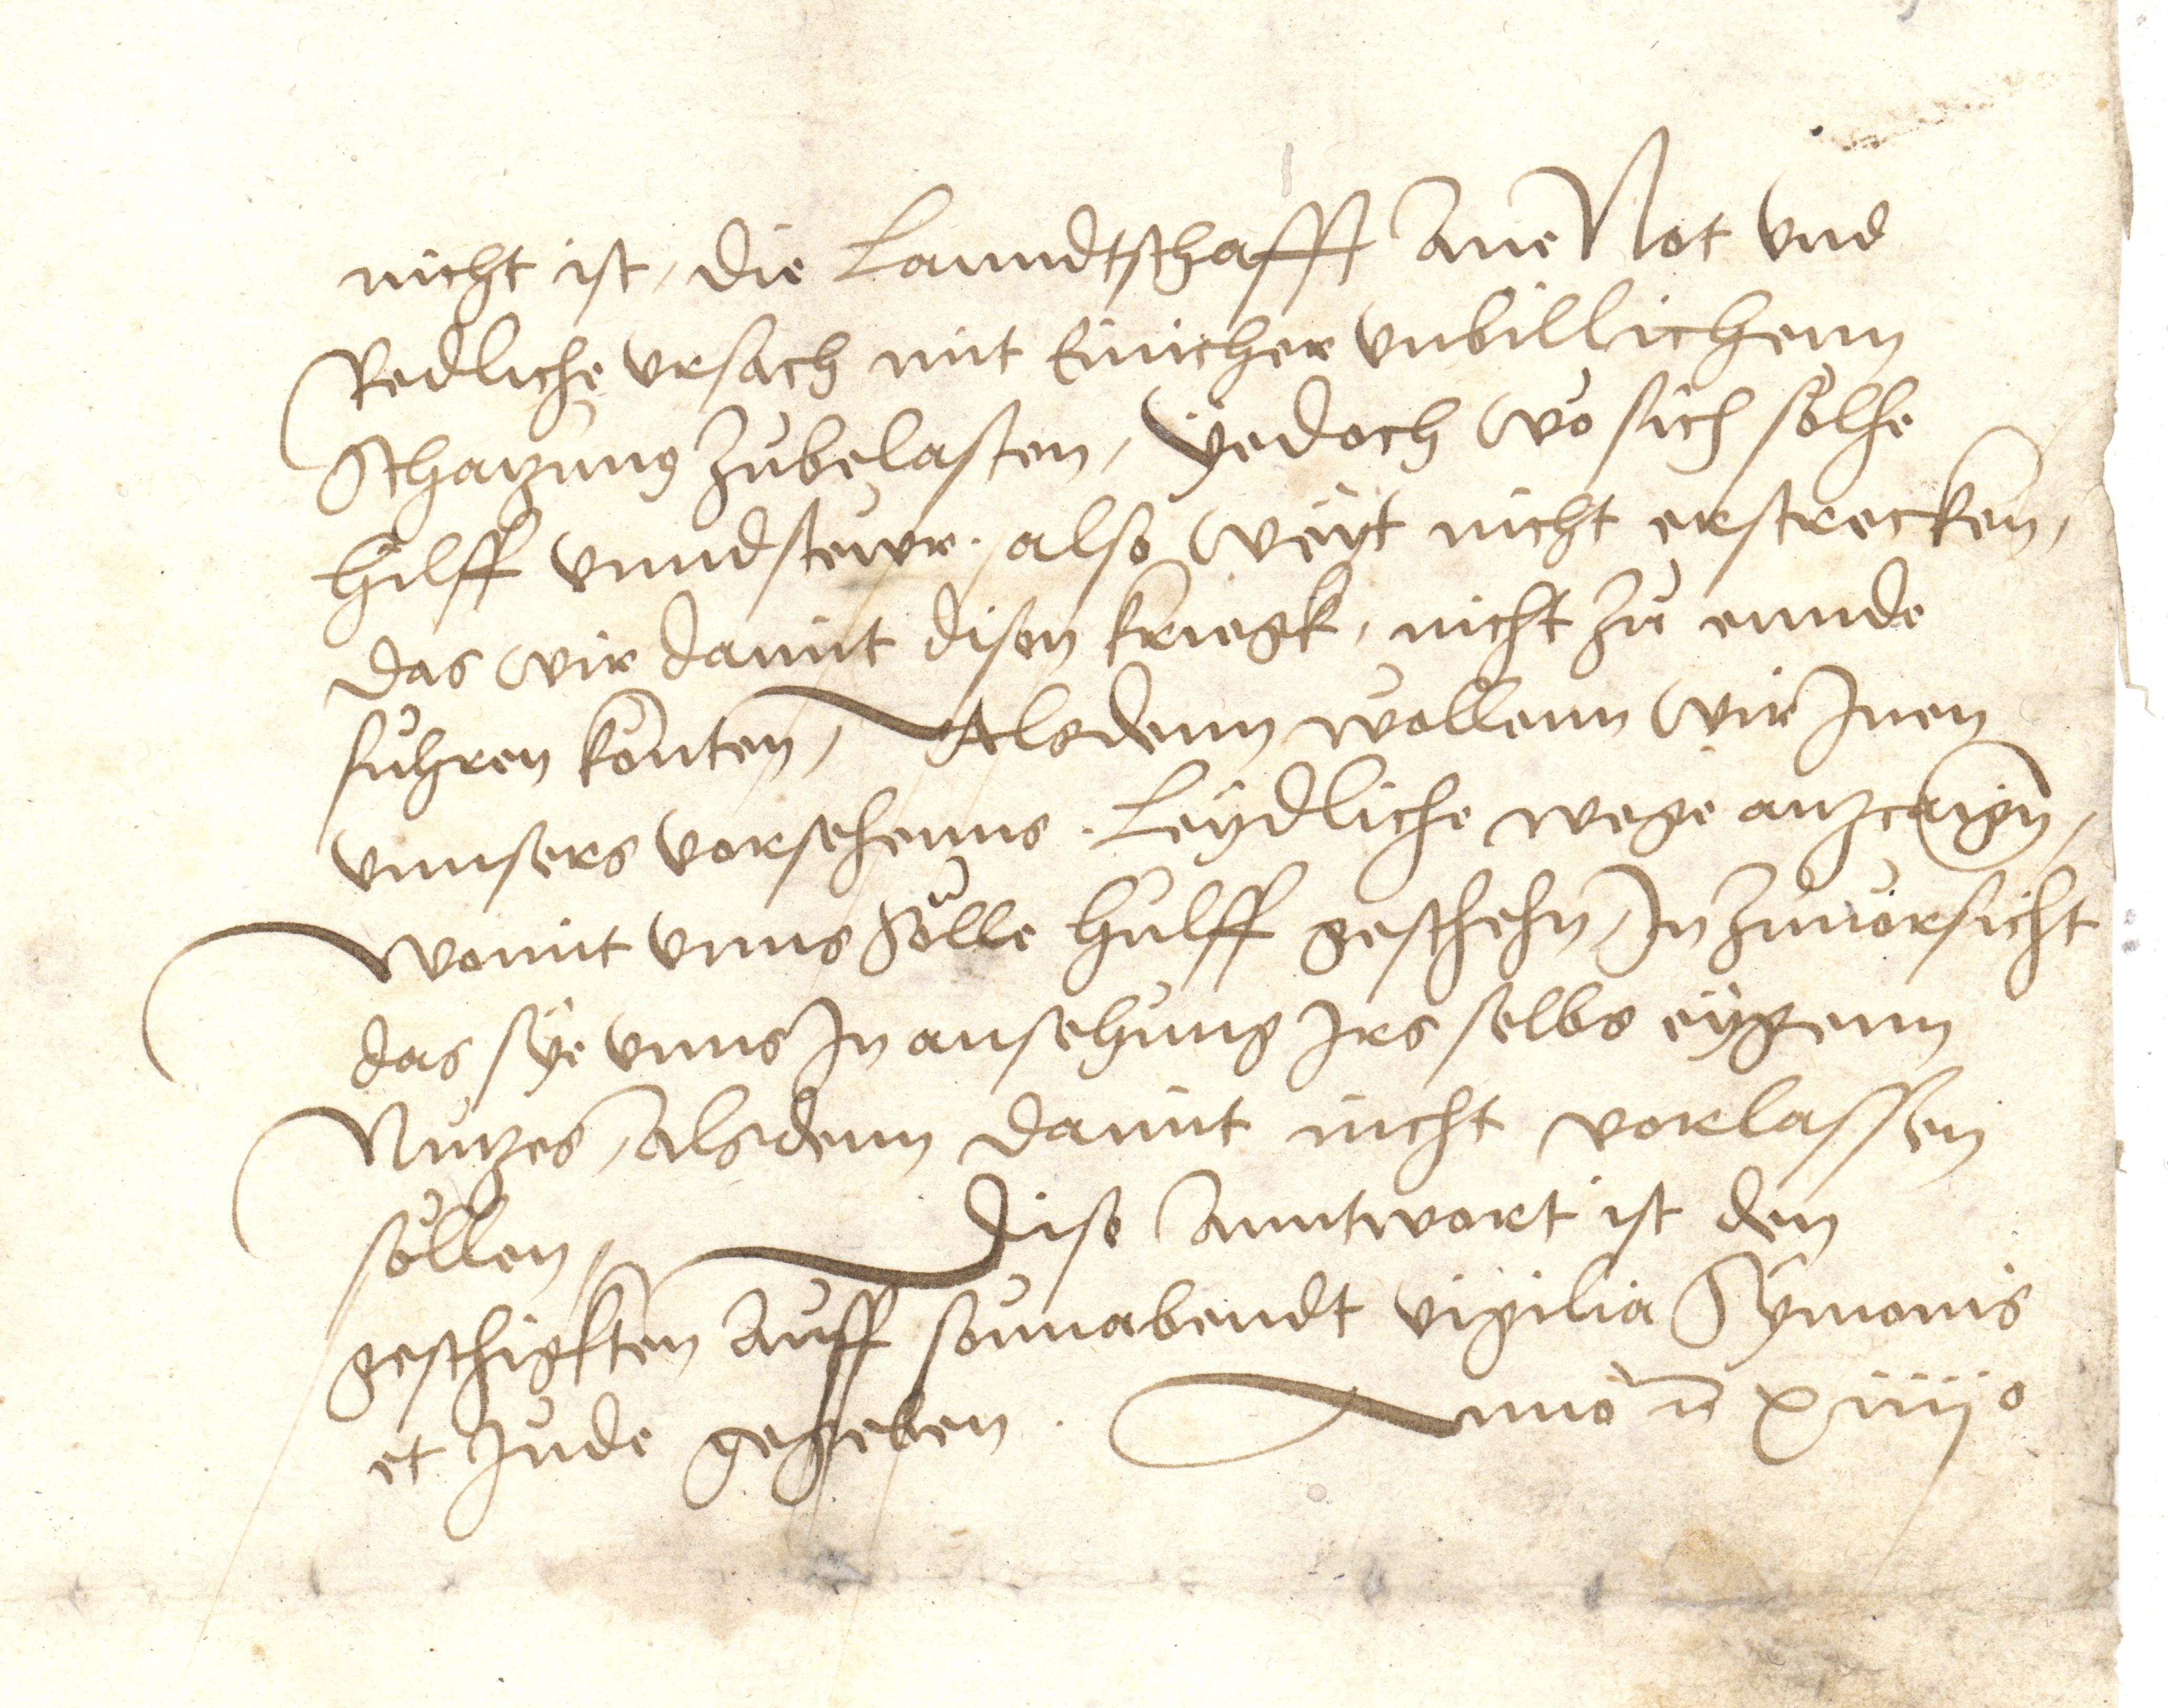 nicht ist, die Lanndtschafft ane Not vnd
Redliche vrsach mit Einicher vnbillichenn
Schatzung zubelasten, Yedoch wo sich sölhe
hilff vnnd stewr. also weyt nicht erstrecken,
das wir damit disen kriegk, nicht zu ennde
fuhren konten, Alsdenn wollenn wir Inen
vnnsers vorsehenns. Leydliche wege antzaign,
womit vnns sölle hulff geschehn, In zuuorsicht
das sye vnns In ansehung Irs selbs eygenn
Nutzes, alsdenn damit nicht vorlassen
sollen, Dise anntwort ist den
geschigkten auff sonnabendt vigilia Symonis
et Jude gegeben. Anno xiiijo